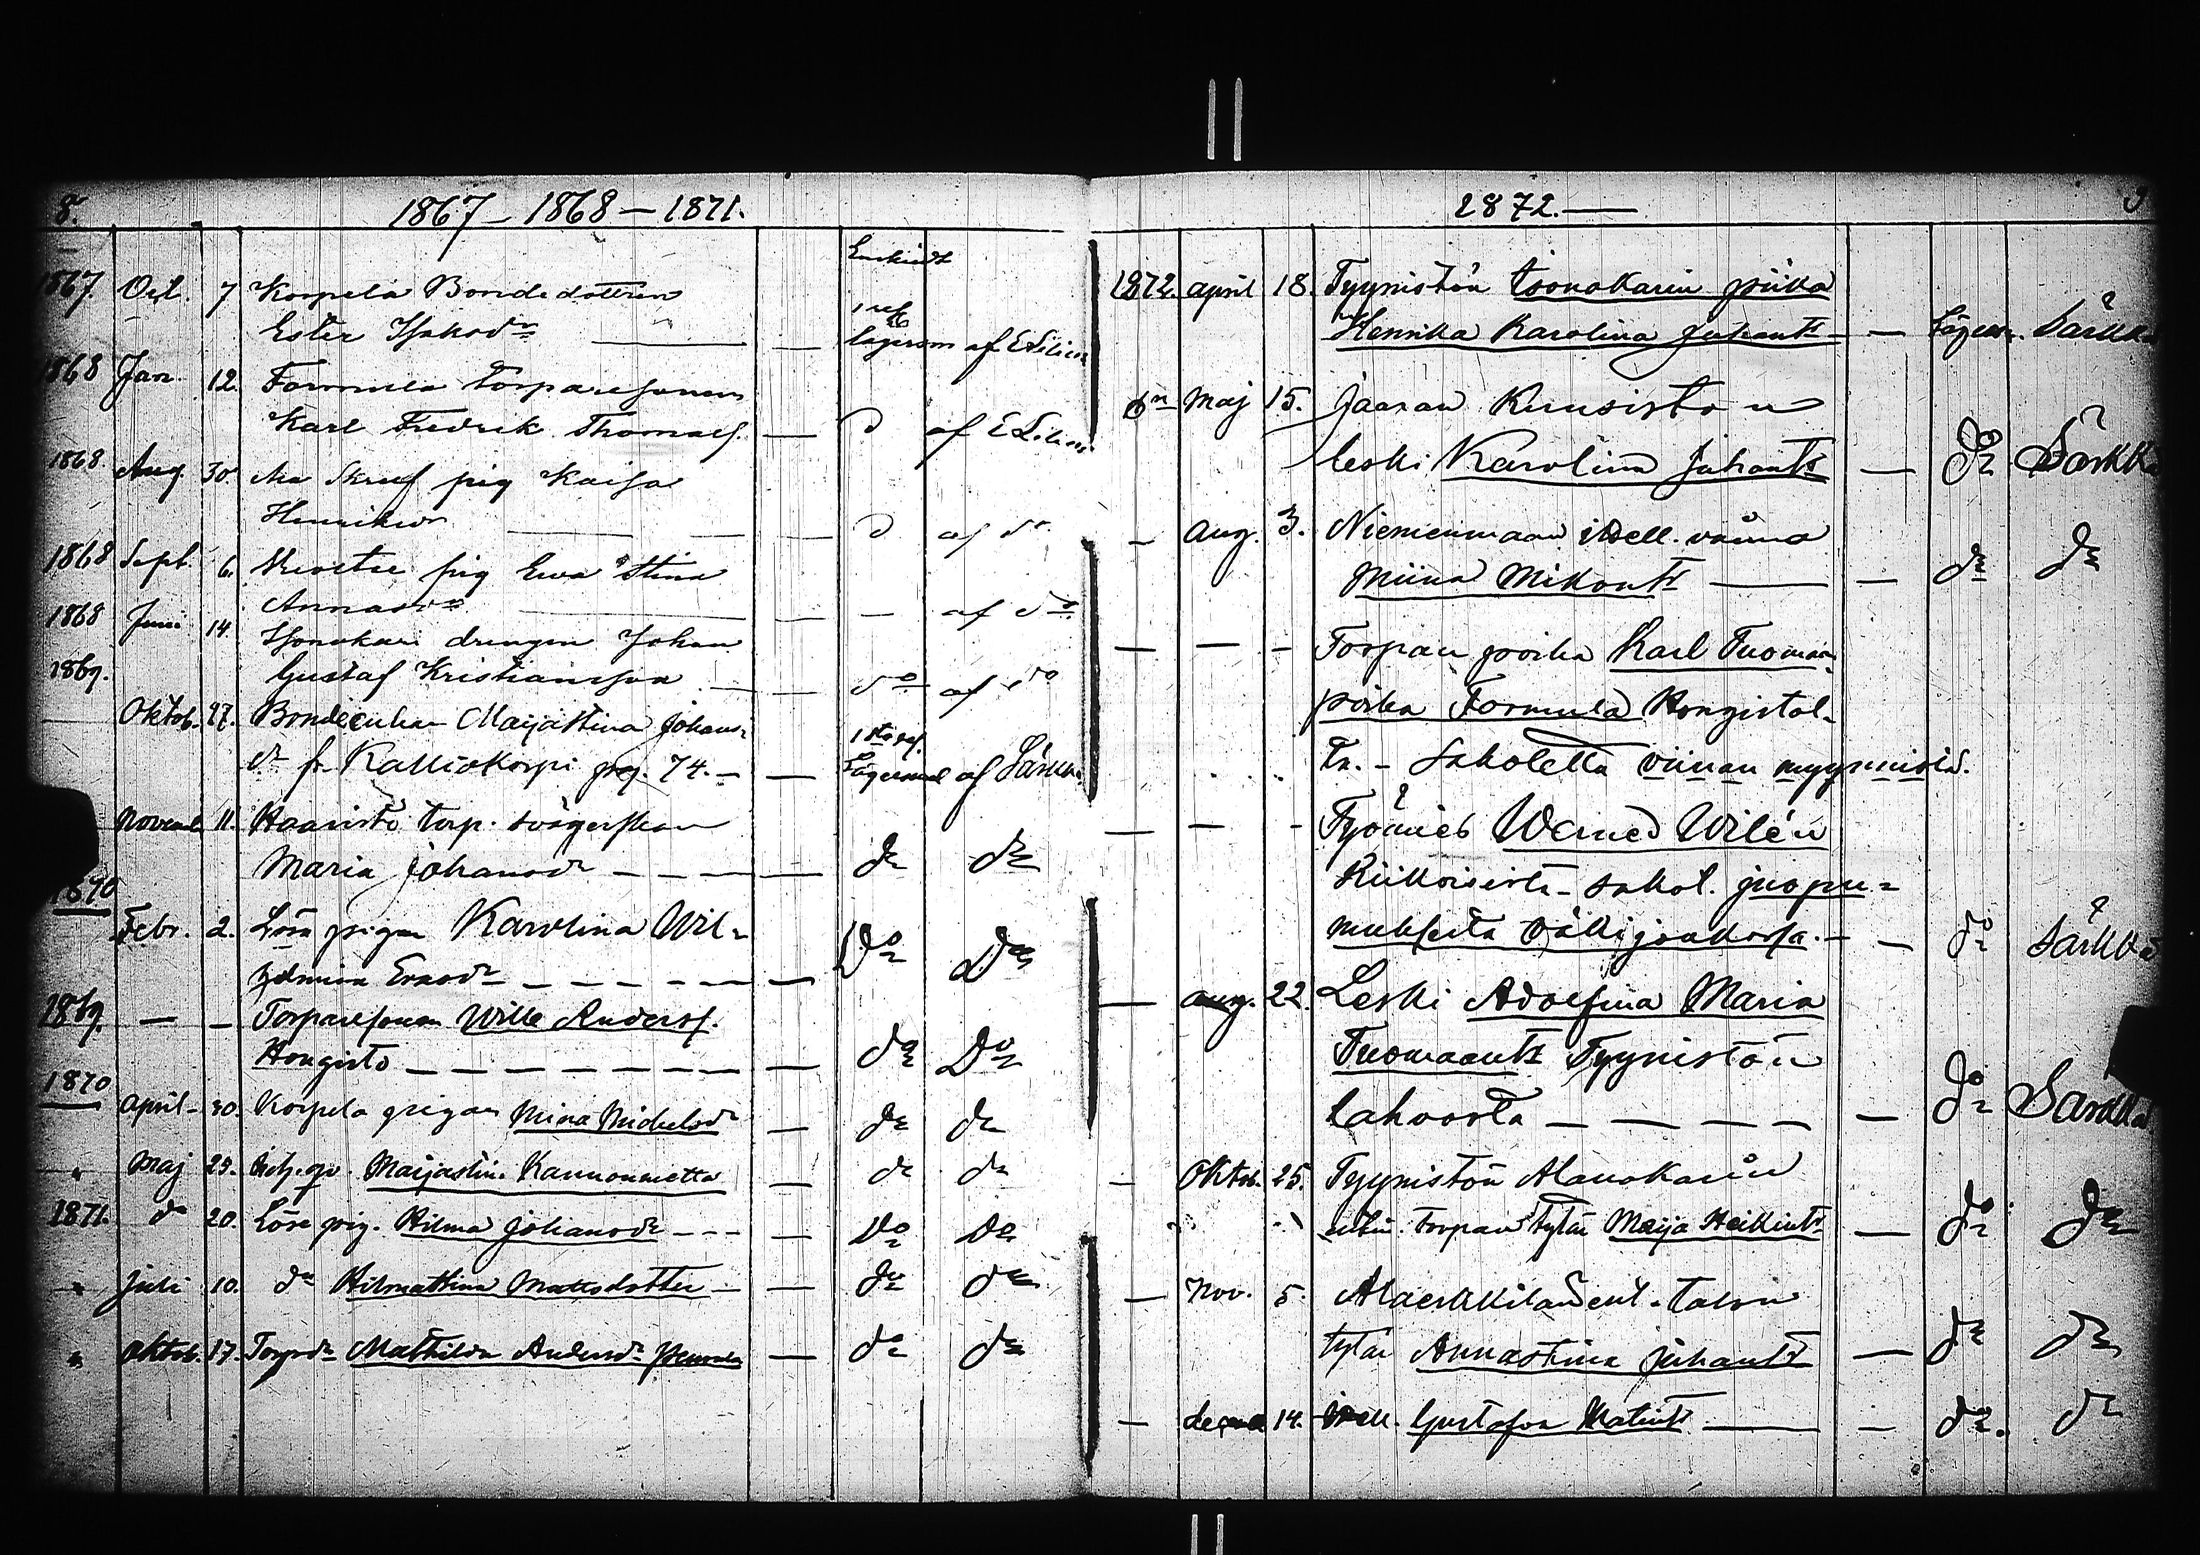 8.
1867 – 1868 – 1871.
Enskildt
1867. Oct. 7 Korpela Bondedottren
Ester Isaksdr — — lägersm af E Lilius
1868 Jan. 12. Formula Torparesonen
Karl Fredrik Thomass. — d af E Lilius
1868. Aug. 30. pig Kaisa
Henriksdr — — d af do
1868 Sept. 6. pig Ewa Stina
Annasdr — — af do
1868 Juni 14. Isonokari drengen Johan
1869. Gustaf Kristiansson — do af do
— Oktob. 27. Bondeenkan Majastina Johans-
dr fr. Kalliokorpi pag. 74. — — Lägersmål af Särkkä
Novemb. 11. Haaristo torp. svägerskan
Maria Johansdr — — — — do do
1870
Febr. 2. Lösa pigan Karolina Wil-
helmina Ersdr — — — — — — Do Do
1869. — — Torparesonen Wille Anderss.
Hongisto — — — — — — — — do Do
1870
April 30. Korpela pigan Mina Michelsdr — do do
" Maj 29. Maijastina Kannonmetta — do do
1871. do 20. Lösa pig. Hilma Johansdr – – – — Do Do
" Juli 10. do Hilmastina Mattsdotter — — do do
" Oktob. 17. Torpdr Mathilda Andersdr — do do
1872. —
1872. April 18. Tyynistön isonokarin piika
Henrika Karolina Juhantr — — Lägersm. Särkkä
do Maj 15. Jaaran Kuusisto n
leski Karolina Juhantr — do Särkkä
— Aug. 3. Niemenmaan itsell. vaimo
Miina Mikontr — — do do
— — – Torpan poika Karl Tuomaan-
poika Formula Hongistol-
ta. – Sakolettu viinan myynnistä.
— — – Työmies Werner Wilén
Riikoisista – sakot. juopu-
muksesta väkijoukossa. — — do Särkkä
— Aug. 22. Leski Adolfina Maria
Tuomaantr Tyynistön
lahvosta — — — — — do Särkkä
— Oktob. 25. Tyynistön Alanokarin
entin. torpan tytär Maija Heikintr — do do
— Nov. 5. Alaerkkilän ent. talon
tytär Annastina Juhantr — do do
— Decemb 14. itsell. Gustafva Matintr — — do. do